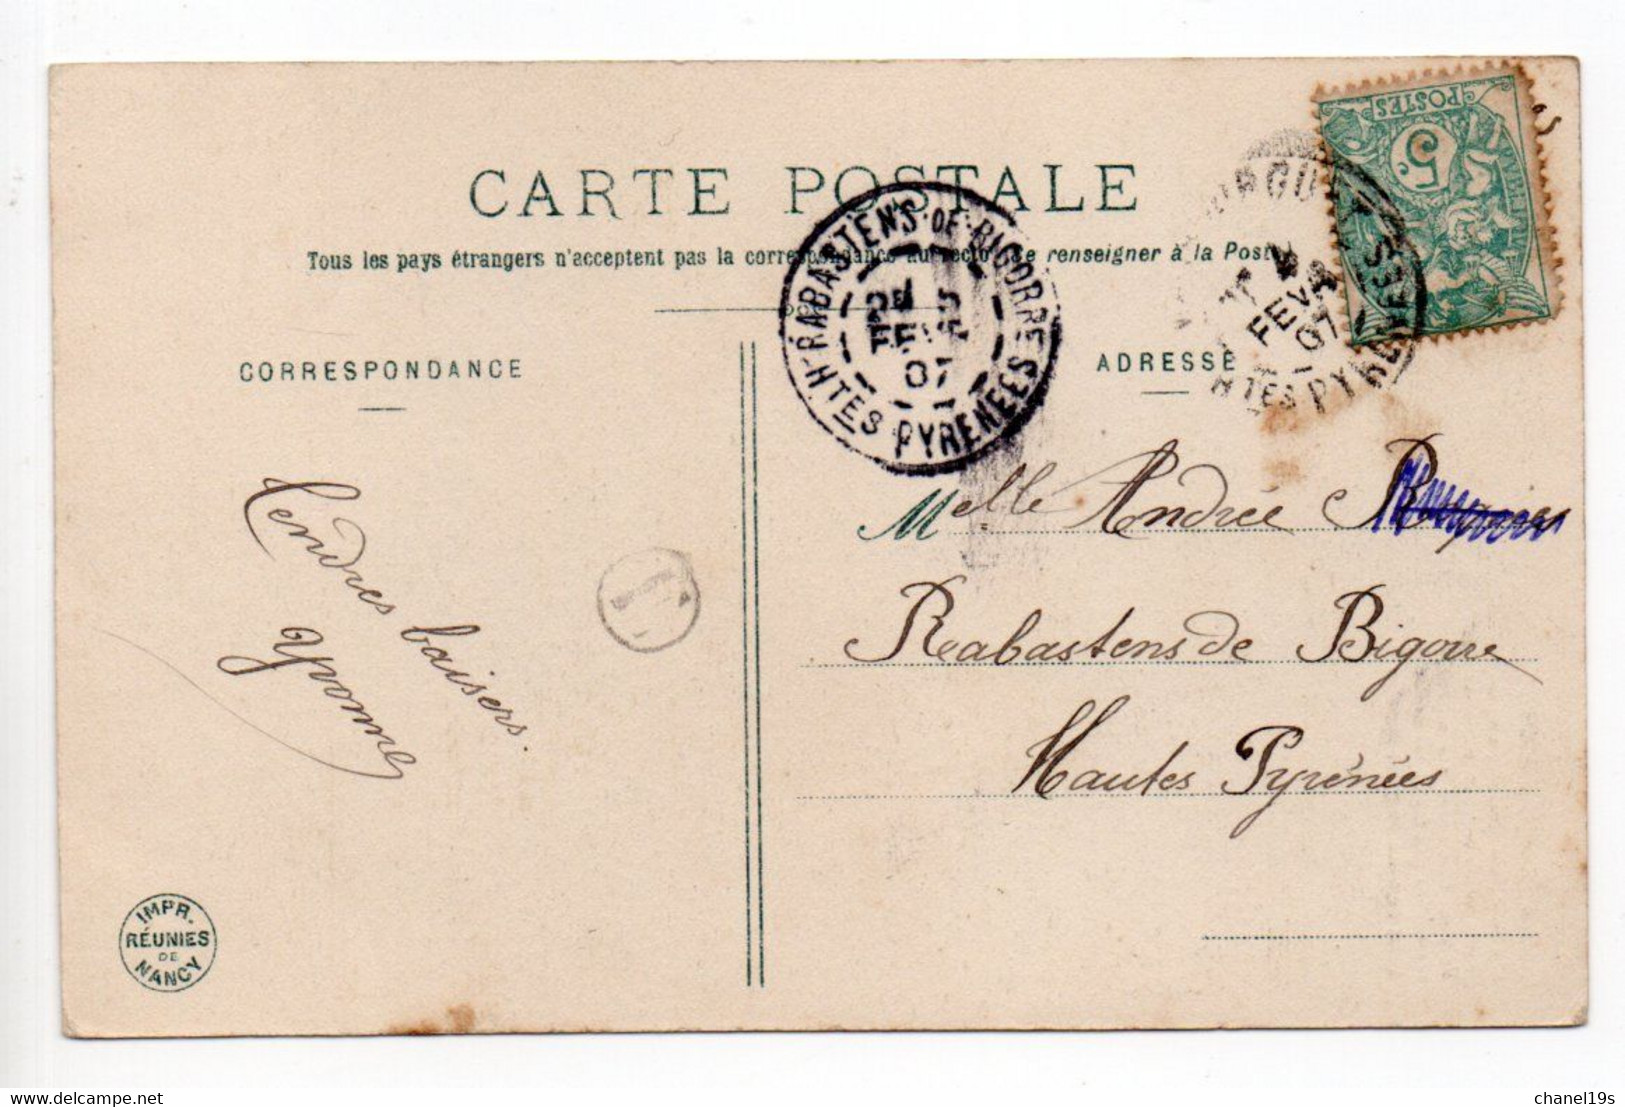 CARTE POSTALE
Tous les pays étrangers n'acceptent pas la correspondance au recto. Se renseigner à la Poste
CORRESPONDANCE
ADRESSE
RABASTENS-DE-BIGORRE
FEVR
07
HTES PYRENEES
POSTES
5
FEVR
07
HTES PYRENEES
Melle Andrée
Rabastens de Bigorre
Hautes Pyrénées
Tendres baisers.
Yvonne
IMPR.
RÉUNIES
DE
NANCY
delcampe.net
chanel19s